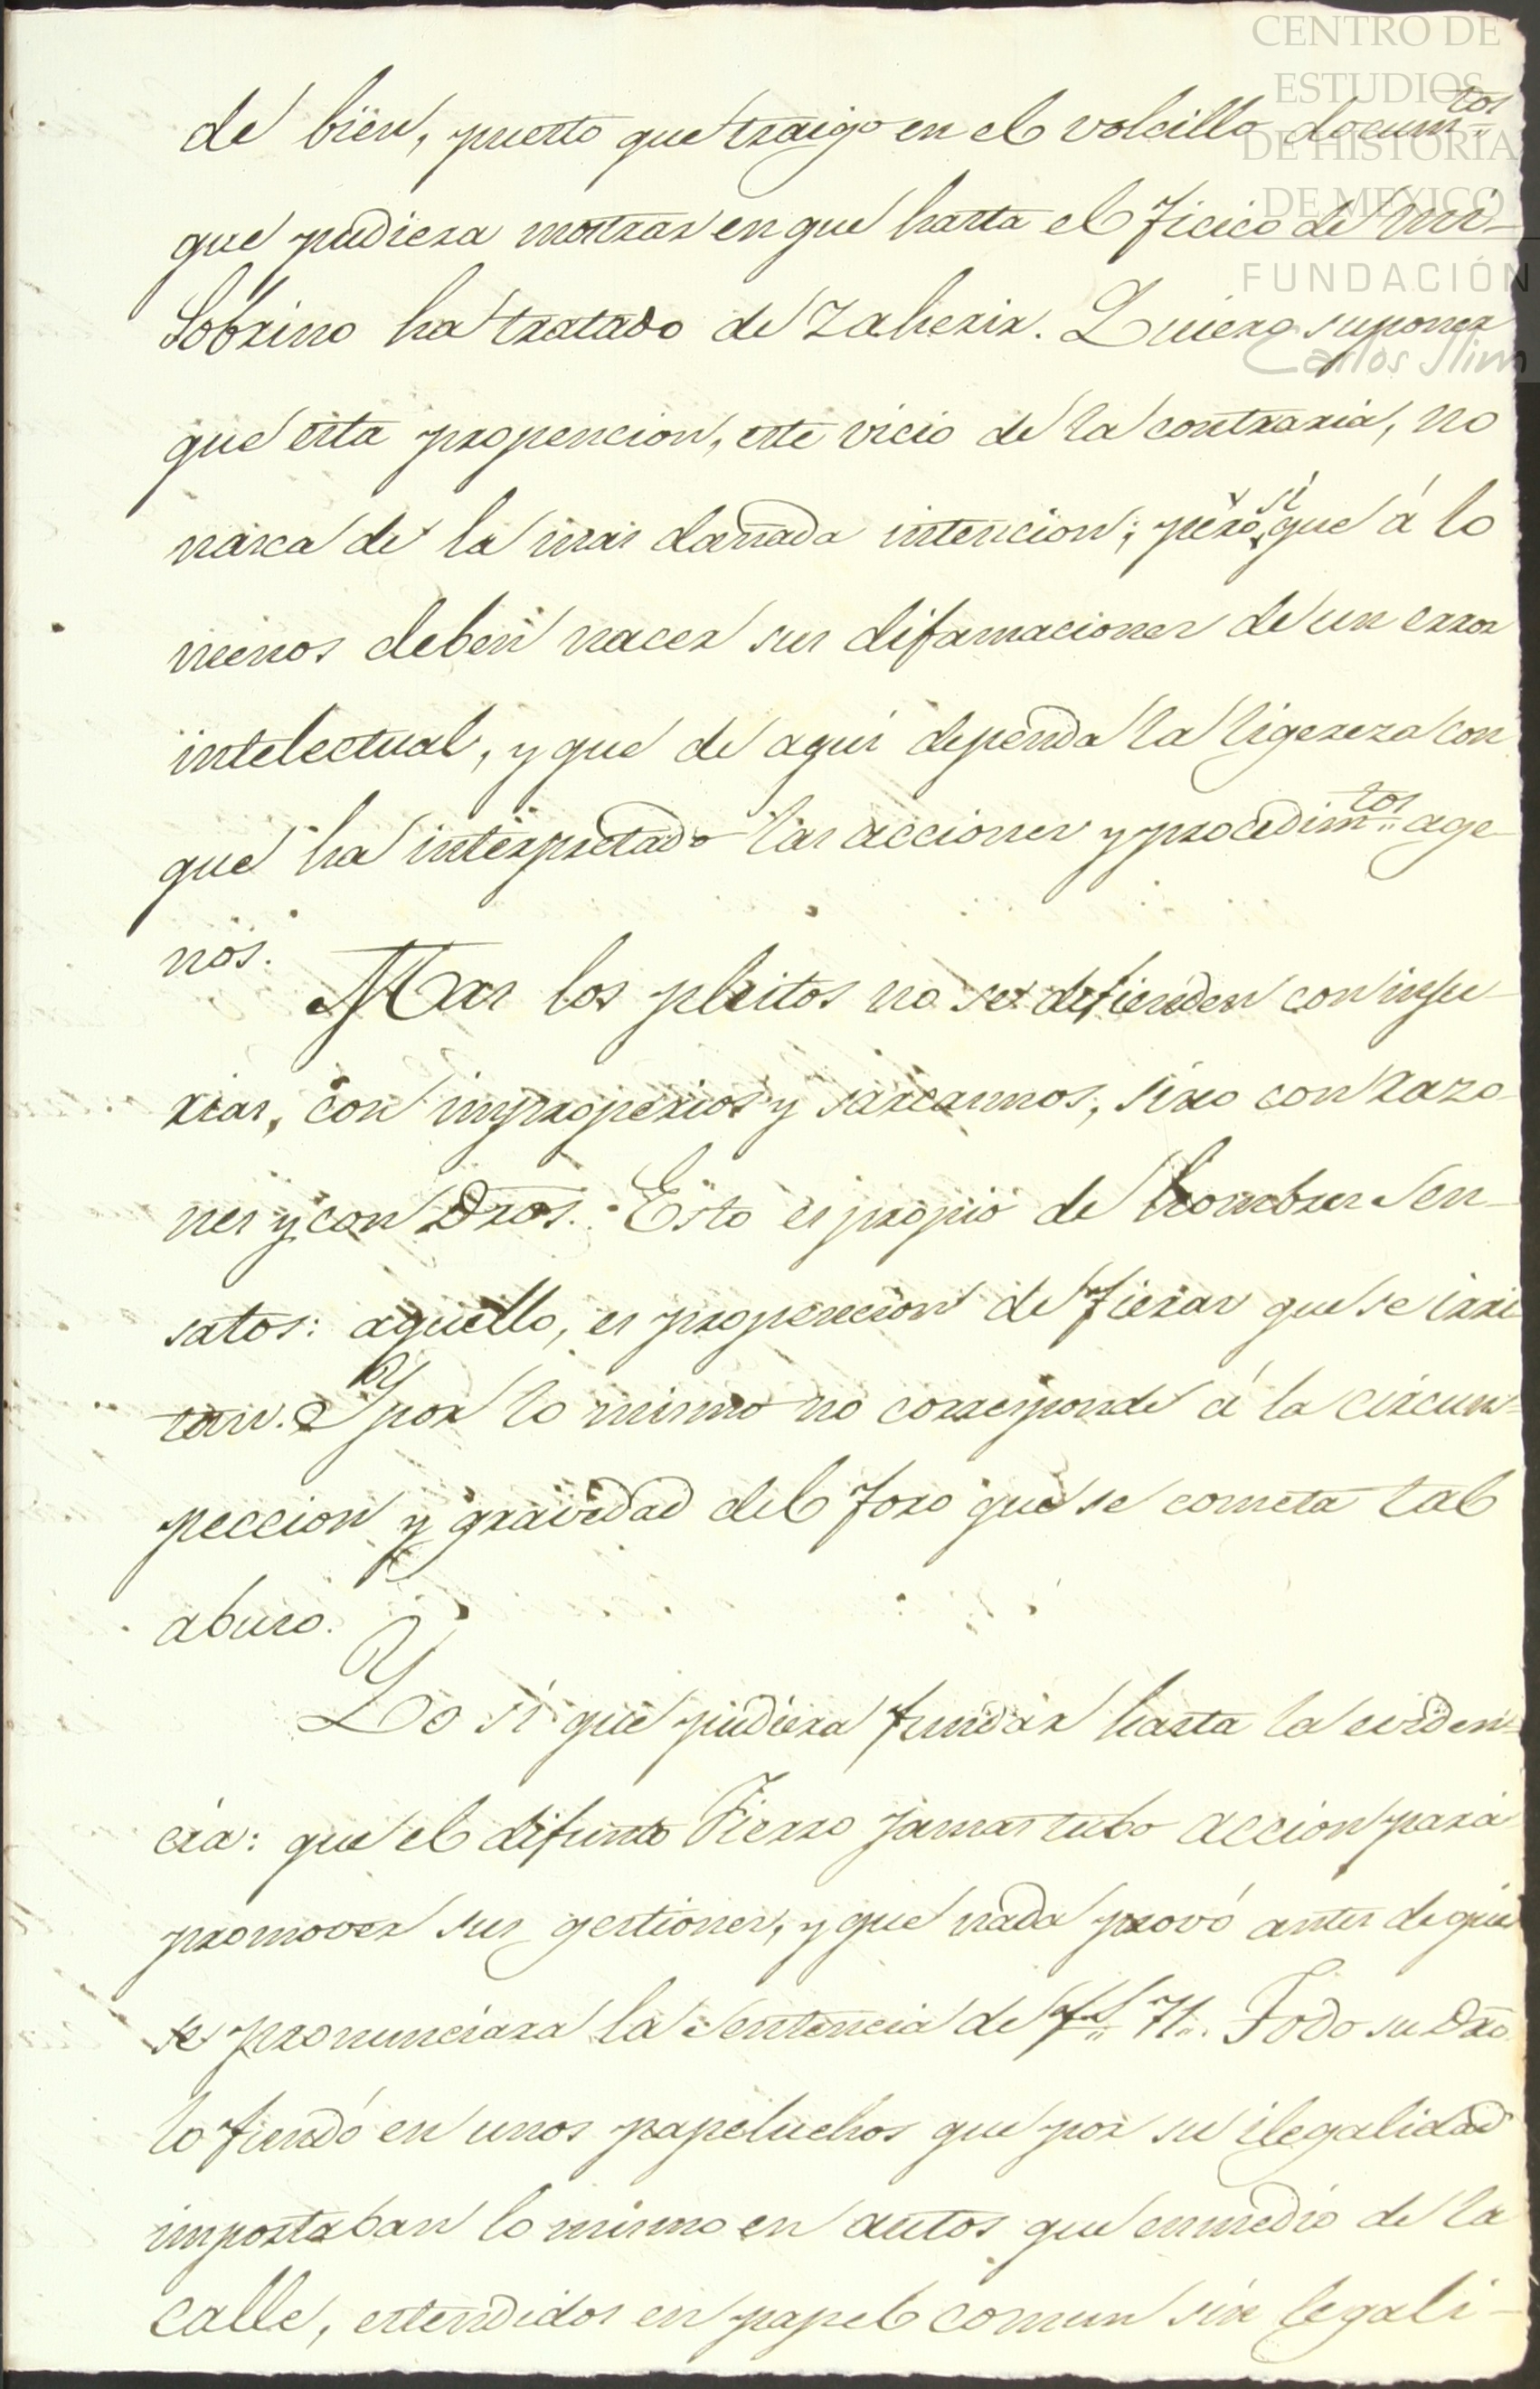 CENTRO DE
ESTUDIOS
DE HISTORIA
DE MEXICO
FUNDACIÓN
Carlos Slim
de bien, puesto que traigo en el volcillo docum.tos
que pudiera mostrar en que hasta el ficico de mi
Sobrino ha tratado de zaherir. Quiero suponer
que esta propencion, este vicio de la contraria, no
nasca de la mas dañada intencion; pero sí que á lo
menos deben nacer sus difamaciones de un error
intelectual, y que de aqui dependa la ligereza con
que ha interpretado las acciones y procedim.tos age-
nos.
Mas los pleitos no se defienden con inju-
rias, con improperios y sarcasmos, sino con razo-
nes y con Dros. Esto es propio de hombres sen-
satos: aquello, es propencion de fieras que se irri
tan. Y por lo mismo no corresponde á la circuns-
peccion y gravedad del foro que se cometa tal
abuso.
Yo sí que pudiera fundar hasta la eviden-
cia: que el difunto Fierro jamas tubo accion para
promover sus gestiones, y que nada provó antes de que
se pronunciara la Sentencia de f.s 71. Todo su Dro
lo fundó en unos papeluchos que por su ilegalidad
importaban lo mismo en autos que enmedio de la
calle, estendidos en papel comun sin legali-